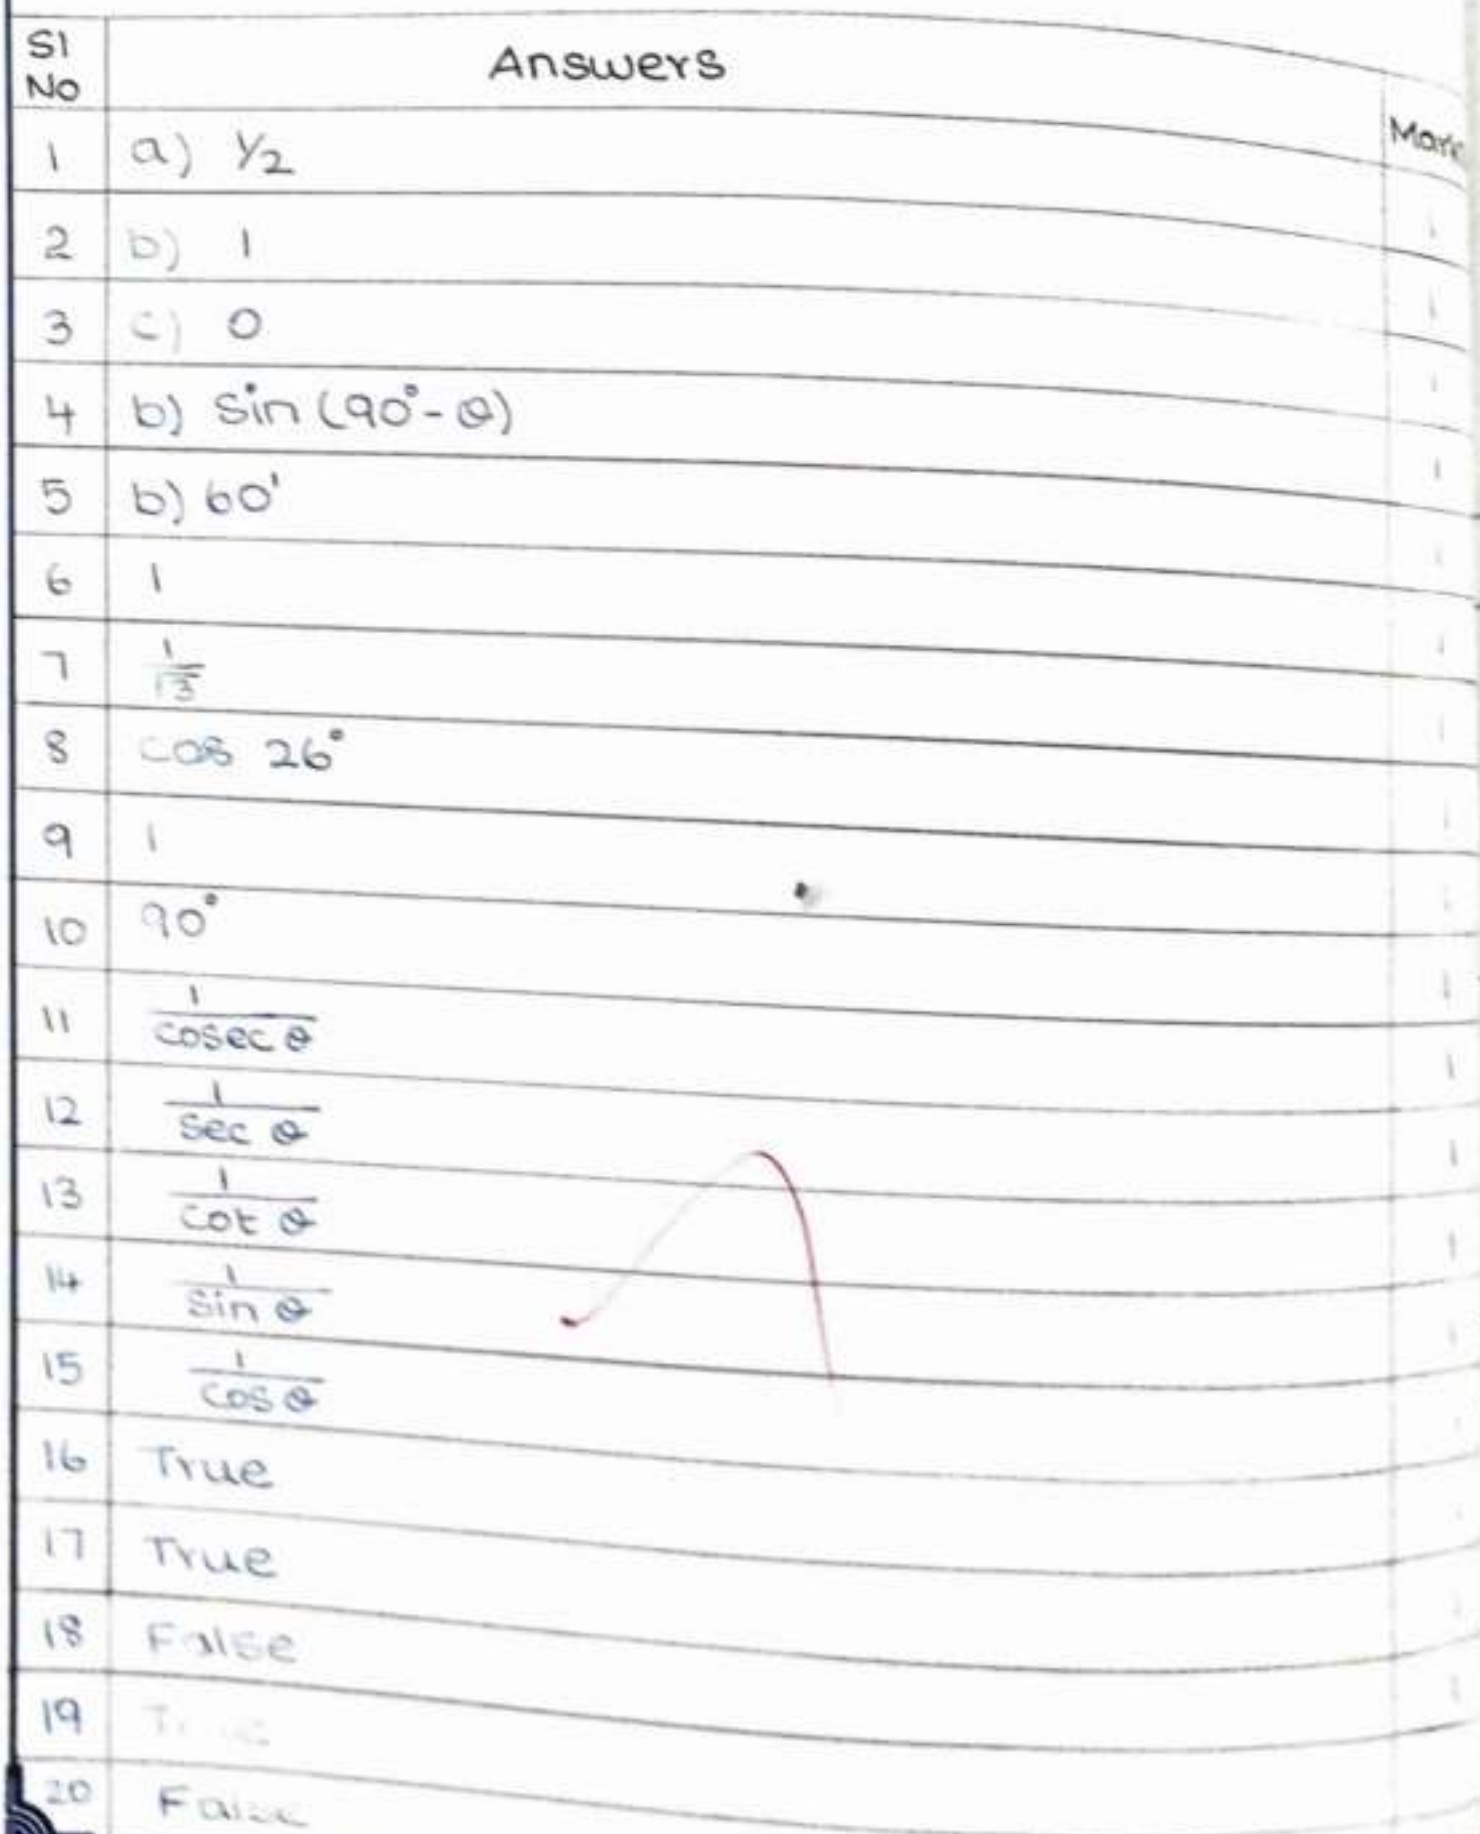 Sl No Answers Mark
1 a) 1/2
2 b) 1 1
3 c) 0 1
4 b) sin (90° - θ) 1
5 b) 60' 1
6 1 1
7 1/√3 1
8 cos 26° 1
9 1 1
10 90° 1
11 1/cosec θ 1
12 1/sec θ 1
13 1/cot θ 1
14 1/sin θ 1
15 1/cos θ 1
16 True
17 True
18 False 1
19 True 1
20 False